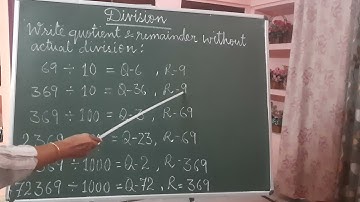 Division
Write quotient & remainder without
actual division:
69 ÷ 10 = Q-6, R=9
369 ÷ 10 = Q-36, R=9
369 ÷ 100 = Q-3, R-69
2369 = Q-23, R-69
369 ÷ 1000 = Q-2, R=369
72369 ÷ 1000 = Q-72, R=369